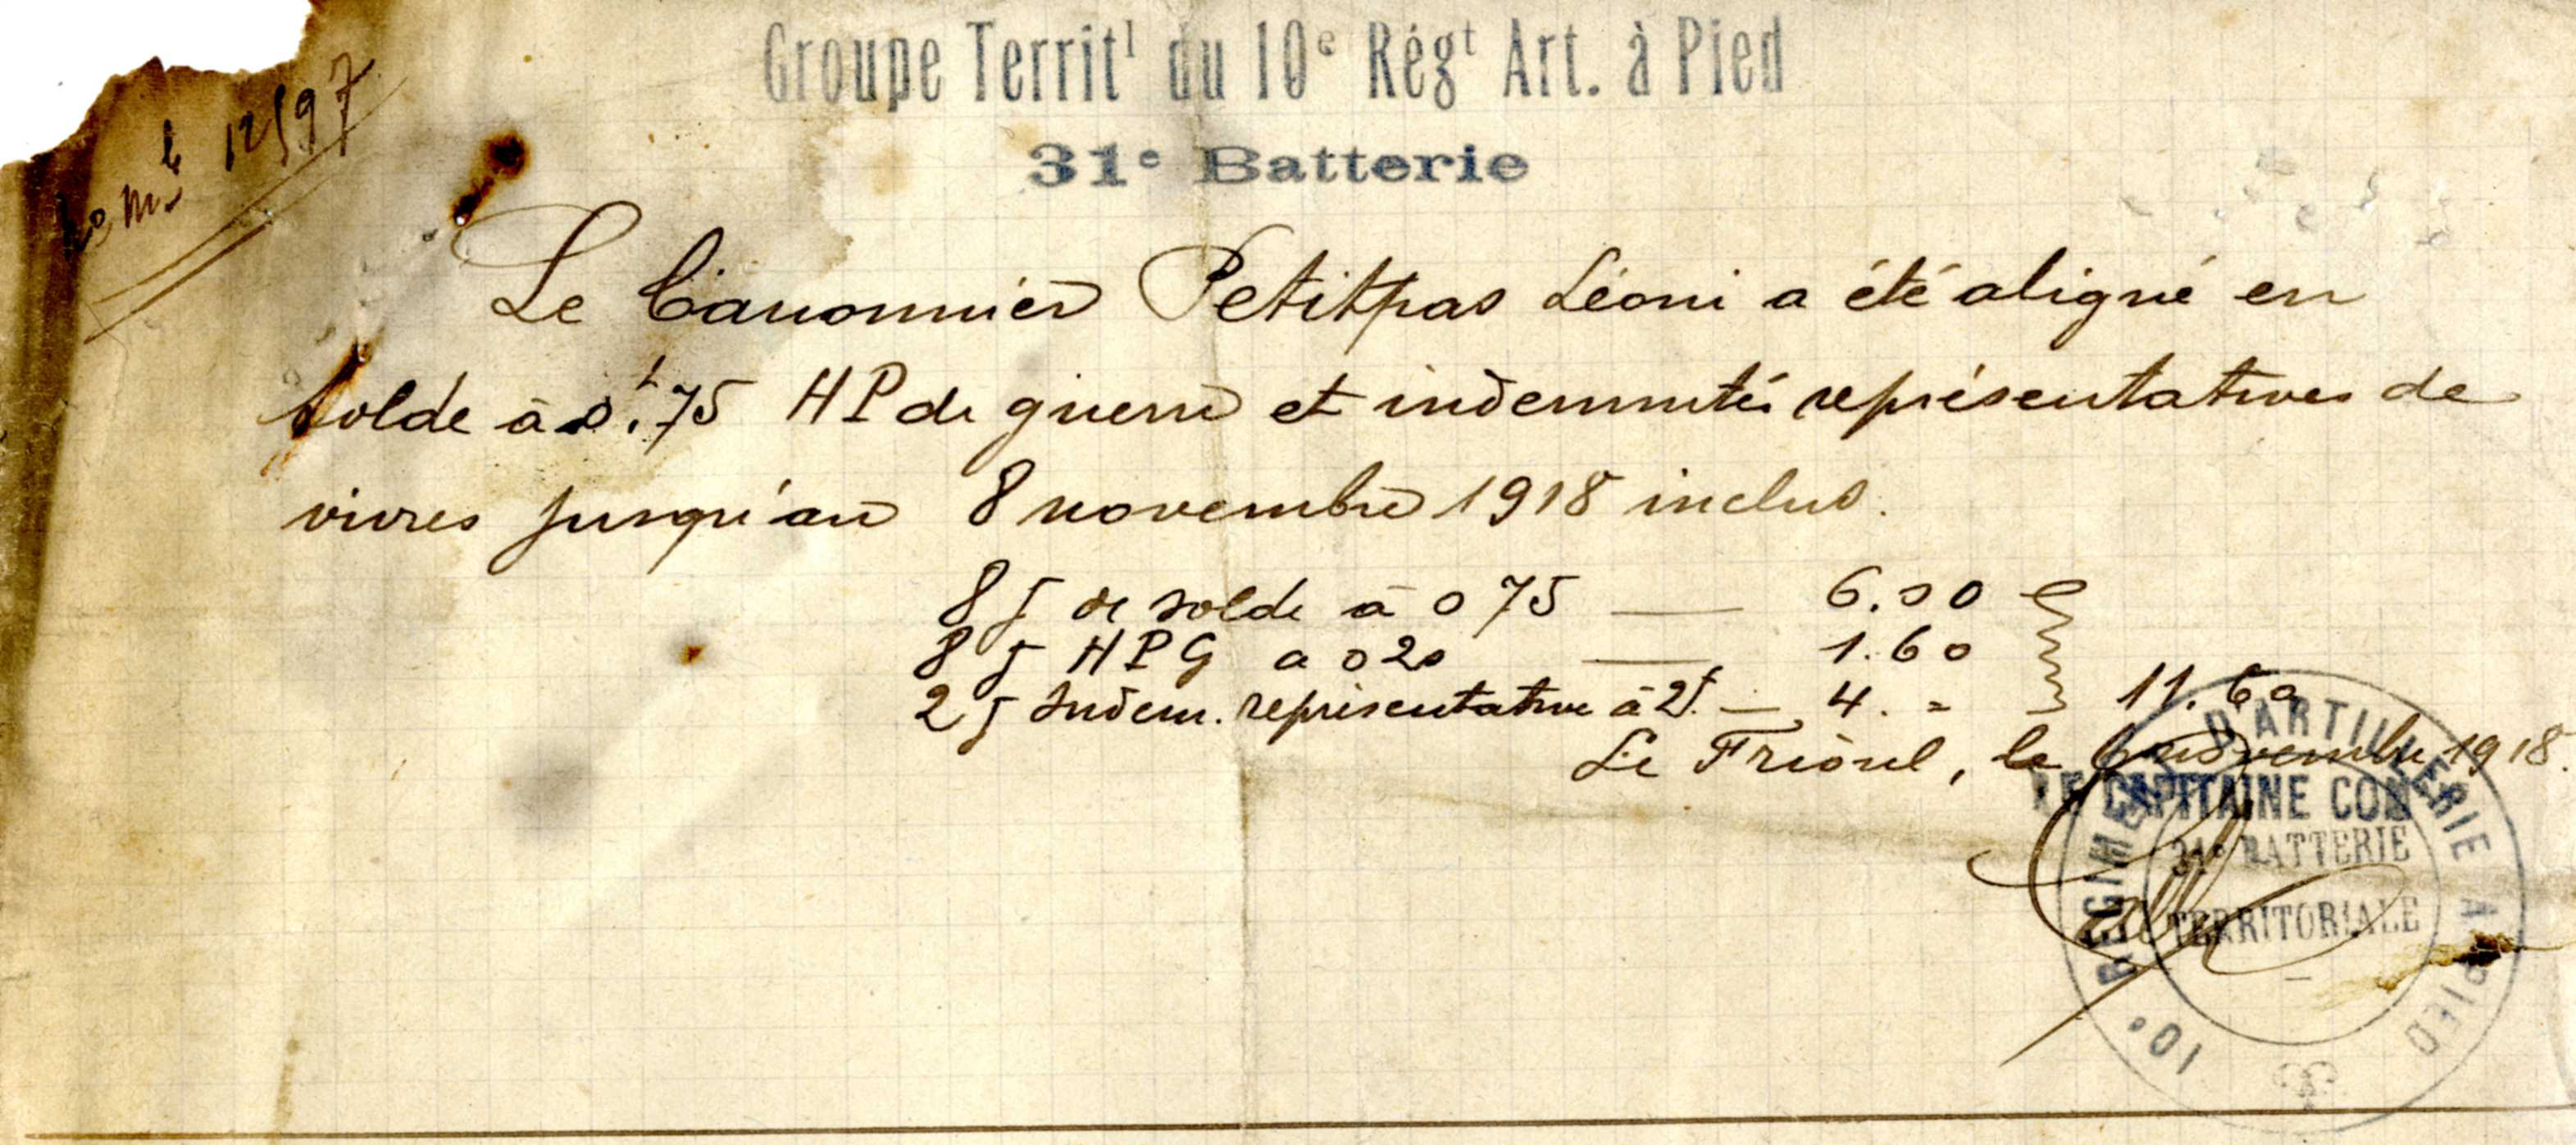 Groupe Territˡ du 10ᵉ Régᵗ Art. à Pied
31ᵉ Batterie
Nº Mˡᵉ 12597
Le Canonnier Petitpas Léoni a été aligné en
solde à 0ᶠ.75 HP de guerre et indemnités représentatives de
vivres jusqu'au 8 novembre 1918 inclus.
8 j de solde à 0 75 — 6.00
8 j HPG a 0 20 — 1.60
2 j Indem. représentative à 2ᶠ. — 4. " 11.60
Le Frioul, le 6 novembre 1918.
LE CAPITAINE COM
10ᵉ REGIMENT D'ARTILLERIE A PIED
31ᵉ BATTERIE
TERRITORIALE